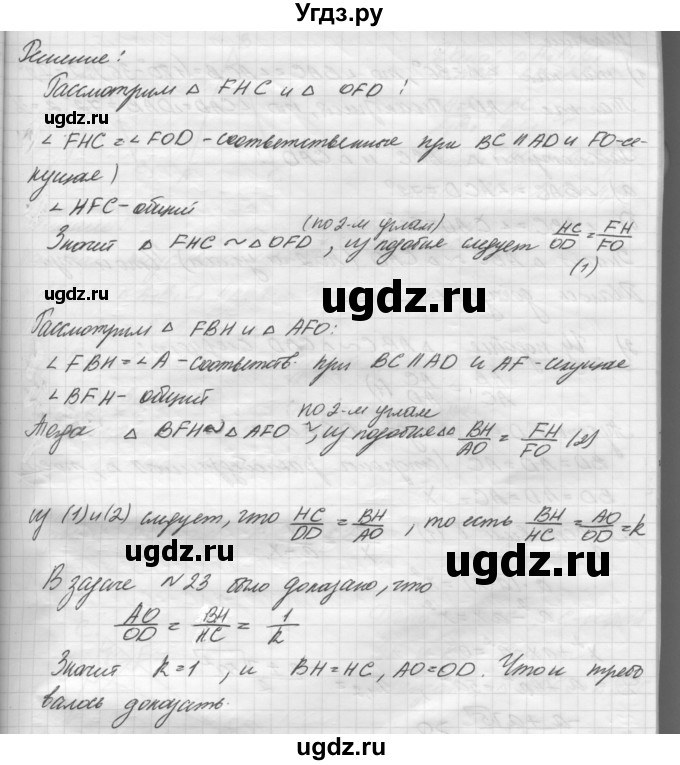 Угдз.ру
Решение:
Рассмотрим △ FHC и △ OFD:
ugdz.ru
∠ FHC = ∠ FOD - соответственные при BC ∥ AD и FO-се-
кущая)
∠ HFC - общий
(по 2-м углам)
Значит △ FHC ~ △ OFD, из подобия следует HC/OD = FH/FO
(1)
ugdz.ru
ugdz.ru
Рассмотрим △ FBH и △ AFO:
∠ FBH = ∠ A - соответств. при BC ∥ AD и AF - секущае
∠ BFH - общий
по 2-м углам
Тогда △ BFH ~ △ AFO, из подобия △ BH/AO = FH/FO (2)
ugdz.ru
из (1) и (2) следует, что HC/OD = BH/AO, то есть BH/HC = AO/OD = k
ugdz.ru
ugdz.ru
В задаче №23 было доказано, что
AO/OD = BH/HC = 1/k
Значит k=1, и BH=HC, AO=OD. Что и требо
валось доказать.
ugdz.ru
ugdz.ru